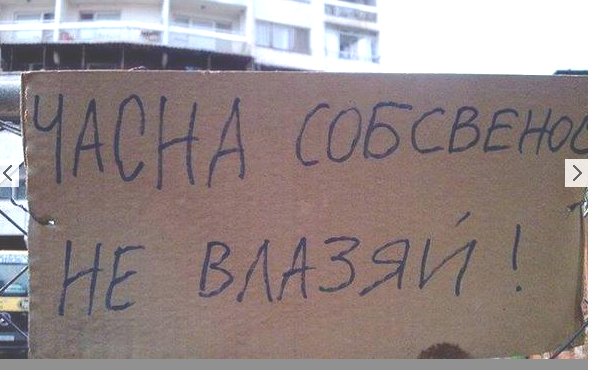 ЧАСНА СОБСВЕНОС
НЕ ВЛАЗЯЙ!